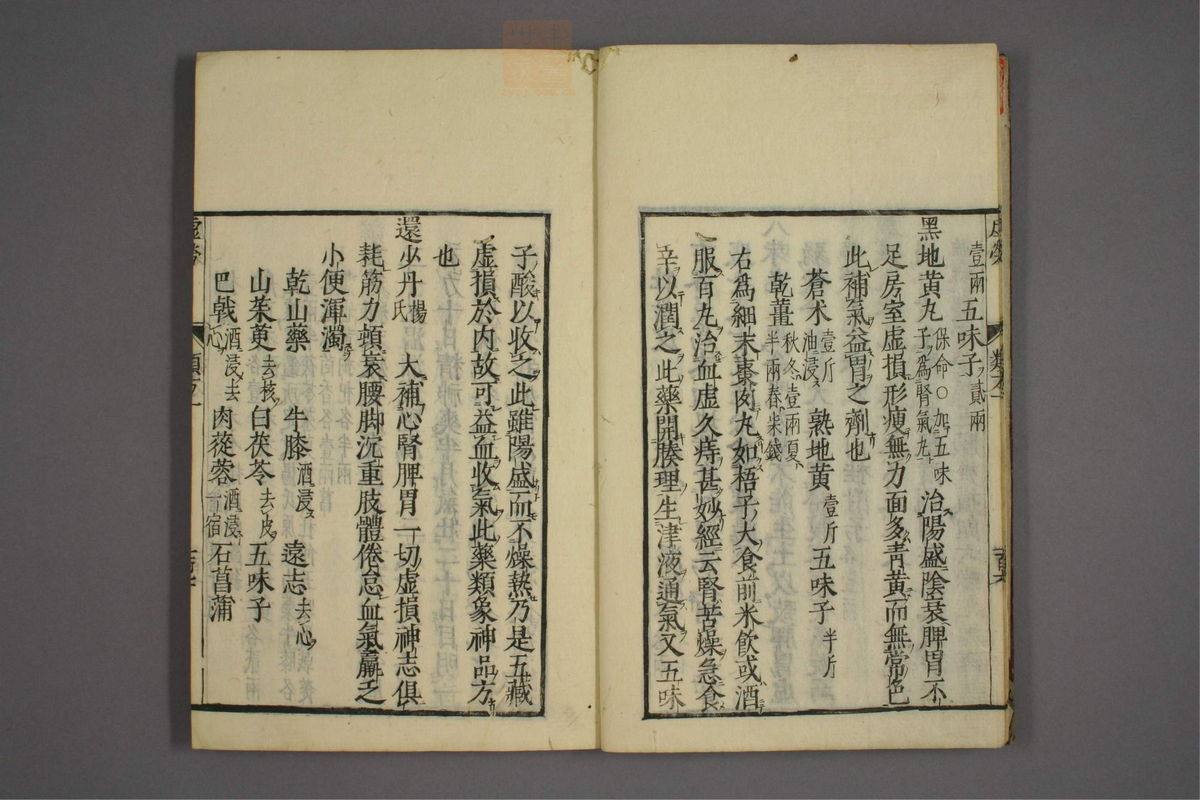 壹兩五味子貳兩
黑地黃丸保命○加五味子爲腎氣丸治陽盛陰衰脾胃不
足房室虛損形瘦無力面多青黃而無常色
此補氣益胃之劑也
蒼术壹斤油浸熟地黃壹斤五味子半斤
乾薑秋冬壹兩夏半兩春柒錢
右爲細末棗肉丸如梧子大食前米飲或酒
服百丸治血虛久痔甚妙經云腎苦燥急食
辛以潤之此藥開腠理生津液通氣又五味
子酸以收之此雖陽盛而不燥熱乃是五藏
虛損於內故可益血收氣此藥類象神品方
也
還少丹楊氏大補心腎脾胃一切虛損神志俱
耗筋力頓衰腰脚沉重肢體倦怠血氣羸乏
小便渾濁
乾山藥牛膝酒浸遠志去心
山茱萸去核白茯苓去皮五味子
巴戟酒浸去心肉蓯蓉酒浸一宿石菖蒲
虛勞